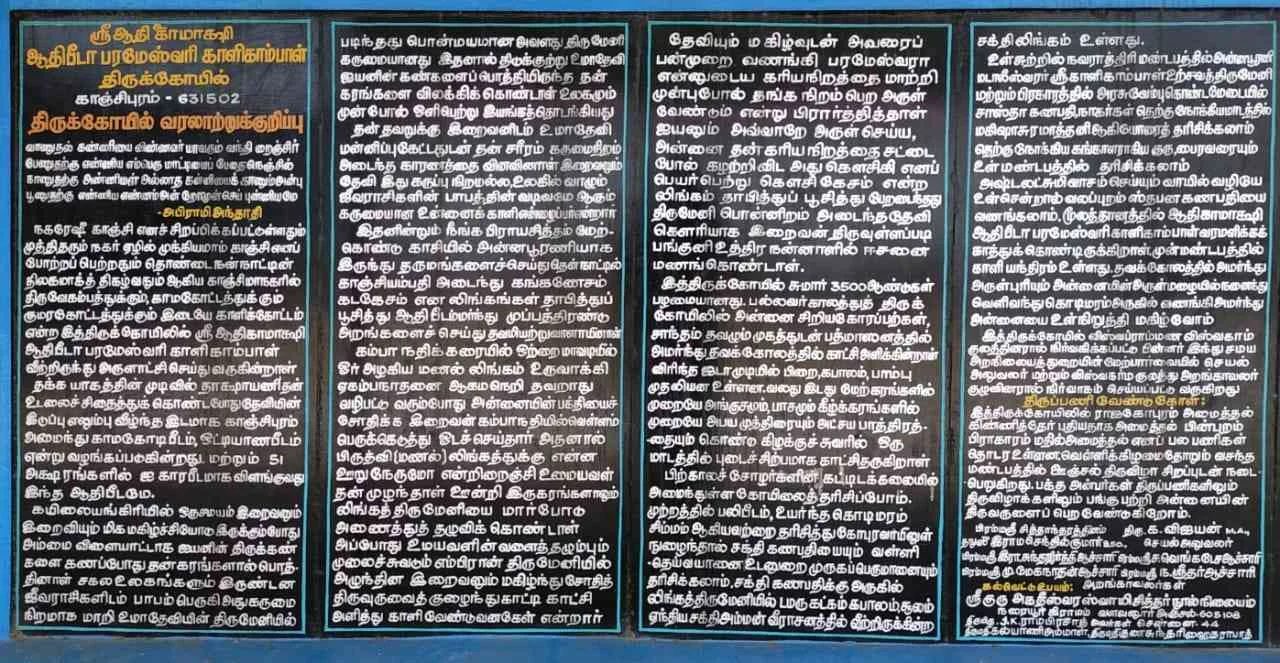 ஸ்ரீ ஆதி காமாக்ஷி
ஆதிபீடா பரமேஸ்வரி காளிகாம்பாள்
திருக்கோயில்
காஞ்சிபுரம் - 631502
திருக்கோயில் வரலாற்றுக்குறிப்பு
-அபிராமி அந்தாதி
நகரேஷீ காஞ்சி எனச் சிறப்பிக்கப்பட்டுள்ளதும்
முத்திதரும் நகர் ஏழில் முக்கியமாம் காஞ்சி எனப்
போற்றப் பெற்றதும் தொண்டை நன்நாட்டின்
திலகமாகத் திகழ்வதும் ஆகிய காஞ்சிமாநகரில்
திருவேகம்பத்துக்கும், காமகோட்டத்துக்கும்
குமரகோட்டத்துக்கும் இடையே காளிக்கோட்டம்
என்ற இத்திருக்கோயிலில் ஸ்ரீ ஆதிகாமாக்ஷி
ஆதிபீடா பரமேஸ்வரி காளி காம்பாள்
வீற்றிருந்து அருளாட்சி செய்து வருகின்றாள்
தக்க யாகத்தின் முடிவில் தாக்ஷாயணிதன்
உடலைச் சிதைத்துக் கொண்டபோது தேவியின்
இடுப்பு எலும்பு வீழ்ந்த இடமாக காஞ்சிபுரம்
அமைந்து காமகோடி பீடம், ஒட்டியாணபீடம்
என்று வழங்கப்படுகின்றது. மற்றும் 51
அக்ஷரங்களில் ஐ காரபீடமாக விளங்குவது
இந்த ஆதிபீடமே.
கயிலையங்கிரியில் ஒருசமயம் இறைவனும்
இறைவியும் மிக மகிழ்ச்சியோடு இருக்கும்போது
அம்மை விளையாட்டாக ஐயனின் திருக்கண்
களை கணப்போது தன்கரங்களால் பொத்
தினாள் சகல உலகங்களும் இருண்டன
ஜீவராசிகளிடம் பாபம் பெருகி அதுகருமை
நிறமாக மாறி உமாதேவியின் திருமேனியில்
படிந்தது பொன்மயமான அவளது திருமேனி
கருமையானது இதனால் திடுக்குற்று உமாதேவி
ஐயனின் கண்களைப் பொத்தியிருந்த தன்
கரங்களை விலக்கிக் கொண்டாள் உலகமும்
முன் போல் ஒளிபெற்று இயங்கத் தொடங்கியது
தன் தவறுக்கு இறைவனிடம் உமாதேவி
மன்னிப்பு கேட்டதுடன் தன் சரீரம் கருமை நிறம்
அடைந்த காரணத்தை வினவினாள் இறைவனும்
தேவி இது கருப்பு நிறமல்ல, உலகில் வாழும்
ஜீவராசிகளின் பாபத்தின் வடிவமே ஆகும்
கருமையான உன்னைக் காளி என்று அழைப்பர் என்றார்
இதனின்றும் நீங்க பிராயசித்தம் மேற்-
கொண்டு காசியில் அன்னபூரணியாக
இருந்து தருமங்களைச் செய்து தென் காட்டில்
காஞ்சியம்பதி அடைந்து கங்கணேசம்
கடகேசம் என லிங்கங்கள் தாபித்துப்
பூசித்து ஆதி பீடம் அமர்ந்து முப்பத்திரண்டு
அறங்களைச் செய்து தவமியற்றுவாளாயினாள்
கம்பா நதிக் கரையில் ஒற்றை மாவடியில்
ஓர் அழகிய மணல் லிங்கம் உருவாக்கி
ஏகம்பநாதனை ஆகமநெறி தவறாது
வழிபட்டு வரும்போது அன்னையின் பக்தியைச்
சோதிக்க இறைவன் கம்பாநதியில் வெள்ளம்
பெருக்கெடுத்து ஓடச் செய்தார் அதனால்
பிருத்வி (மணல்) லிங்கத்துக்கு என்ன
ஊறு நேருமோ என்றிறைஞ்சி உமையவள்
தன் முழந்தாள் ஊன்றி இருகரங்களாலும்
லிங்கத் திருமேனியை மார்போடு
அணைத்துத் தழுவிக் கொண்டாள்
அப்போது உமயவளின் வளைத் தழும்பும்
முலைச் சுவடும் எம்பிரான் திருமேனியில்
அழுந்தின இறைவனும் மகிழ்ந்து சோதித்
திருவுருவைத் குழைந்து காட்டி காட்சி
அளித்து காளி வேண்டுவன கேள் என்றார்
தேவியும் மகிழ்வுடன் அவரைப்
பன்முறை வணங்கி பரமேஸ்வரா
என்னுடைய கரியநிறத்தை மாற்றி
முன்புபோல் தங்க நிறம் பெற அருள்
வேண்டும் என்று பிரார்த்தித்தாள்
ஐயனும் அவ்வாறே அருள் செய்ய,
அன்னை தன் கரிய நிறத்தை சட்டை
போல் கழற்றிவிட அது கௌசிகி எனப்
பெயர் பெற்று கௌசி கேசம் என்ற
லிங்கம் தாபித்துப் பூசித்து பேறடைந்தது
திருமேனி பொன்னிறம் அடைந்த தேவி
கௌரியாக இறைவன் திருவுள்ளப்படி
பங்குனி உத்திர நன்னாளில் ஈசனை
மணங்கொண்டாள்.
இத்திருக்கோயில் சுமார் 3500 ஆண்டுகள்
பழமையானது. பல்லவர் காலத்துத் திருக்
கோயிலில் அன்னை சிறிய கோரப்பற்கள்,
சாந்தம் தவழும் முகத்துடன் பத்மாஸனத்தில்
அமர்ந்து தவக்கோலத்தில் காட்சி அளிக்கின்றாள்
விரிந்த ஜடாமுடியில் பிறை, கபாலம், பாம்பு
முதலியன உள்ளன. வலது இடது மேற்கரங்களில்
முறையே அங்குசமும், பாசமும் கீழ்க்கரங்களில்
முறையே அபய முத்திரையும் அட்சய பாத்திரத்-
தையும் கொண்டு கிழக்குச் சுவரில் ஒரு
மாடத்தில் புடைச் சிற்பமாக காட்சிதருகிறாள்
பிற்காலச் சோழர்களின் கட்டிடக்கலையில்
அமைந்துள்ள கோயிலைத் தரிசிப்போம்.
முற்றத்தில் பலிபீடம், உயர்ந்த கொடிமரம்
சிம்மம் ஆகியவற்றை தரிசித்து கோபுரவாயிலுள்
நுழைந்தால் சக்தி கணபதியையும் வள்ளி
-தெய்வயானை உடனுறை முருகப்பெருமானையும்
தரிசிக்கலாம், சக்தி கணபதிக்கு அருகில்
லிங்கத்திருமேனியில் டமரு கட்கம் கபாலம், சூலம்
ஏந்திய சக்தி அம்மன் வீராசனத்தில் வீற்றிருக்கின்ற
சக்திலிங்கம் உள்ளது.
உள்சுற்றில் நவராத்திரி மண்டபத்தில் அன்னபூரணி
மற்றும் பிரகாரத்தில் அரசு வேம்பு தொண்மேடையில்
சாஸ்தா கணபதி, நாகர்கள் தெற்கு நோக்கிய மாடத்தில்
மகிஷாசுரமர்த்தனி ஆகியோரைத் தரிசிக்கலாம்
உள் மண்டபத்தில் தரிசிக்கலாம்
அஷ்டலட்சுமி வாசம் செய்யும் வாயில் வழியே
உள் சென்றால் வலப்புறம் ஸ்தபன கணபதியை
வணங்கலாம், மூலத்தானத்தில் ஆதிகாமாக்ஷி
ஆதிபீடா பரமேஸ்வரி காளிகாம்பாள் வரமளிக்கக்
காத்துக் கொண்டிருக்கிறாள். முன் மண்டபத்தில்
காளி யந்திரம் உள்ளது. தவக்கோலத்தில் அமர்ந்து
அருள்புரியும் அன்னையின் அருள் மழையில் நனைந்து
வெளிவந்து கொடிமரம் அருகில் வணங்கி அமர்ந்து
அன்னையை உள்நிறுத்தி மகிழ்வோம்
இத்திருக்கோயில் விஸ்வப்ராம்மண விஸ்வகாம்
குலத்தினரால் நிர்வகிக்கப்பட்டு பின்னர் இந்து சமய
அறநிலையத்துறையின் மேற்பார்வையில் செயல்
அலுவலர் மற்றும் விஸ்வகர்ம குலத்து அறங்காவலர்
குழுவினரால் நிர்வாகம் செய்யப்பட்டு வருகிறது
திருப்பணி வேண்டுகோள்:
இத்திருக்கோயிலில் ராஜகோபுரம் அமைத்தல்
கிணற்றினைத் புதியதாக அமைத்தல் பின்புறம்
பிராகாரம் மதில் அமைத்தல் எனப் பல பணிகள்
தொடர உள்ளன. வெள்ளிக்கிழமை தோறும் வசந்த
மண்டபத்தில் ஊஞ்சல் திருவிழா சிறப்புடன் நடை-
பெறுகிறது. பக்த அன்பர்கள் திருப்பணிகளிலும்
திருவிழாக்களிலும் பங்கு பற்றி அன்னையின்
திருவருளைப் பெற வேண்டுகிறோம்.
திரு. க. விஜயன்
செயல் அலுவலர்
கல்வெட்டு உபயம்:
ஸ்ரீ குரு அகதீஸ்வர ஸ்வாமி சித்தர் நூல் நிலையம்